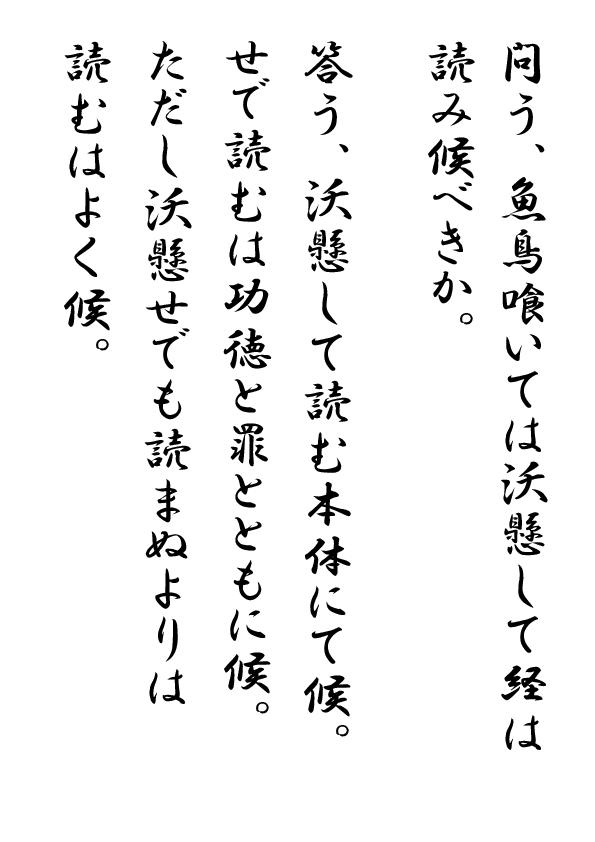 問う、魚鳥喰いては沃懸して経は
読み候べきか。
答う、沃懸して読む本体にて候。
せで読むは功徳と罪とともに候。
ただし沃懸せでも読まぬよりは
読むはよく候。